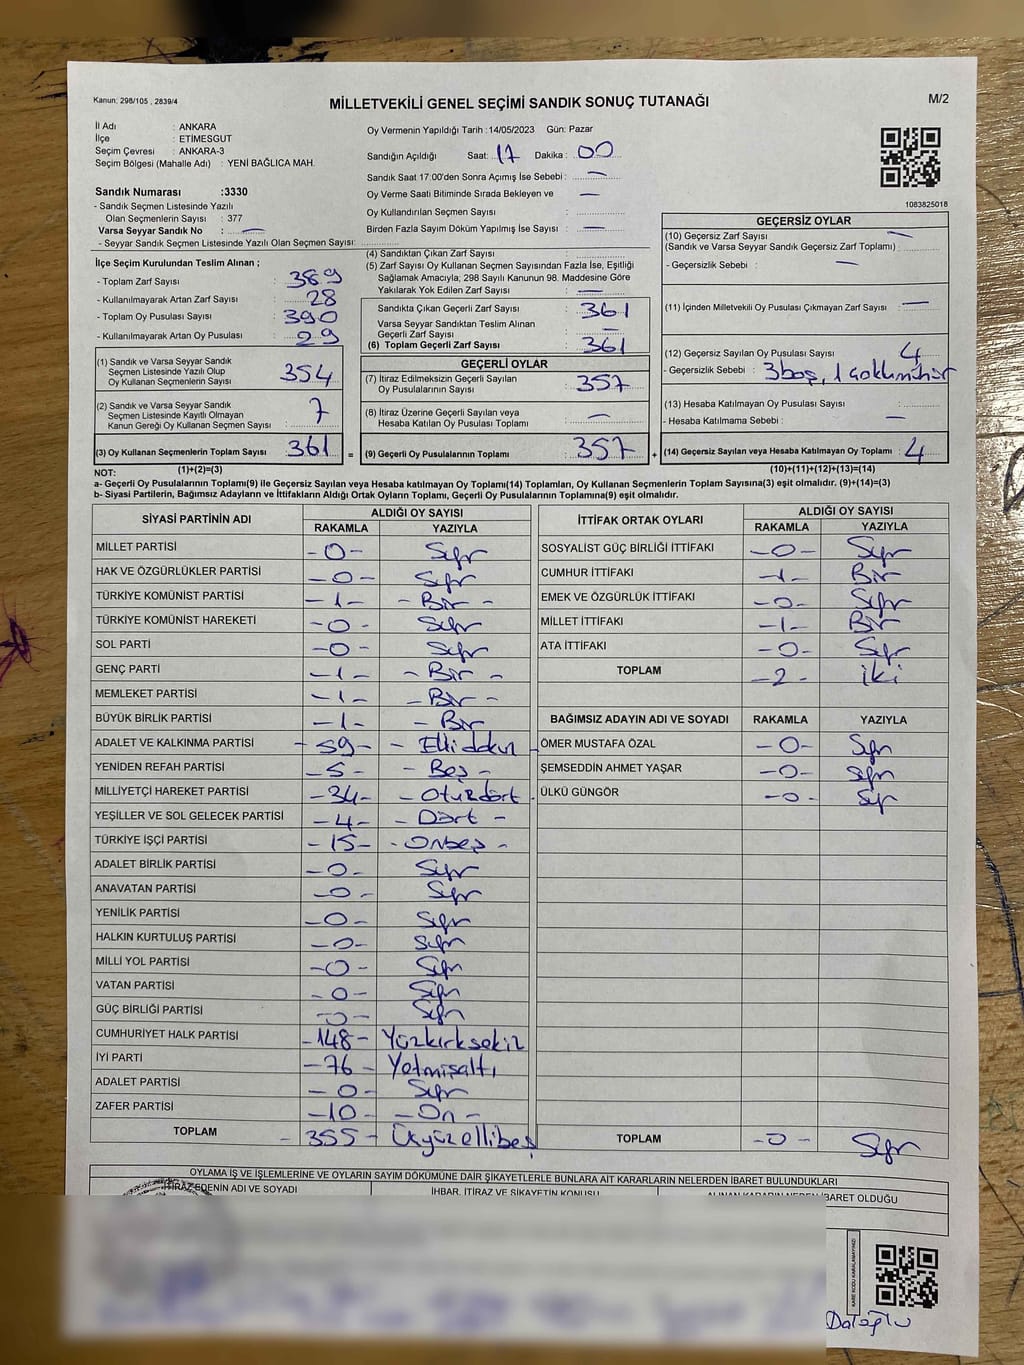 Kanun: 298/105 , 2839/4
MİLLETVEKİLİ GENEL SEÇİMİ SANDIK SONUÇ TUTANAĞI
M/2
İl Adı : ANKARA
İlçe : ETİMESGUT
Seçim Çevresi : ANKARA-3
Seçim Bölgesi (Mahalle Adı) : YENİ BAĞLICA MAH.
Oy Vermenin Yapıldığı Tarih : 14/05/2023 Gün: Pazar
Sandığın Açıldığı Saat: 17 Dakika : 00
Sandık Saat 17:00'den Sonra Açımış İse Sebebi : —
Oy Verme Saati Bitiminde Sırada Bekleyen ve —
Oy Kullandırılan Seçmen Sayısı :
Birden Fazla Sayım Döküm Yapılmış İse Sayısı : —
1083825018
Sandık Numarası :3330
- Sandık Seçmen Listesinde Yazılı
Olan Seçmenlerin Sayısı : 377
Varsa Seyyar Sandık No : —
- Seyyar Sandık Seçmen Listesinde Yazılı Olan Seçmen Sayısı:
İlçe Seçim Kurulundan Teslim Alınan ;
- Toplam Zarf Sayısı : 389
- Kullanılmayarak Artan Zarf Sayısı : 28
- Toplam Oy Pusulası Sayısı : 390
- Kullanılmayarak Artan Oy Pusulası : 29
(1) Sandık ve Varsa Seyyar Sandık
Seçmen Listesinde Yazılı Olup
Oy Kullanan Seçmenlerin Sayısı : 354
(2) Sandık ve Varsa Seyyar Sandık
Seçmen Listesinde Kayıtlı Olmayan
Kanun Gereği Oy Kullanan Seçmen Sayısı : 7
(3) Oy Kullanan Seçmenlerin Toplam Sayısı : 361 =
(4) Sandıktan Çıkan Zarf Sayısı :
(5) Zarf Sayısı Oy Kullanan Seçmen Sayısından Fazla İse, Eşitliği
Sağlamak Amacıyla; 298 Sayılı Kanunun 98. Maddesine Göre
Yakılarak Yok Edilen Zarf Sayısı : —
Sandıkta Çıkan Geçerli Zarf Sayısı : 361
Varsa Seyyar Sandıktan Teslim Alınan
Geçerli Zarf Sayısı : —
(6) Toplam Geçerli Zarf Sayısı : 361
GEÇERLİ OYLAR
(7) İtiraz Edilmeksizin Geçerli Sayılan
Oy Pusulalarının Sayısı : 357
(8) İtiraz Üzerine Geçerli Sayılan veya
Hesaba Katılan Oy Pusulası Toplamı : —
(9) Geçerli Oy Pusulalarının Toplamı : 357 +
GEÇERSİZ OYLAR
(10) Geçersiz Zarf Sayısı —
(Sandık ve Varsa Seyyar Sandık Geçersiz Zarf Toplamı) :
- Geçersizlik Sebebi : —
(11) İçinden Milletvekili Oy Pusulası Çıkmayan Zarf Sayısı : —
(12) Geçersiz Sayılan Oy Pusulası Sayısı : 4
- Geçersizlik Sebebi : 3 boş, 1
(13) Hesaba Katılmayan Oy Pusulası Sayısı :
- Hesaba Katılmama Sebebi : —
(14) Geçersiz Sayılan veya Hesaba Katılmayan Oy Toplamı : 4
NOT: (1)+(2)=(3) (10)+(11)+(12)+(13)=(14)
a- Geçerli Oy Pusulalarının Toplamı(9) ile Geçersiz Sayılan veya Hesaba katılmayan Oy Toplamı(14) Toplamları, Oy Kullanan Seçmenlerin Toplam Sayısına(3) eşit olmalıdır. (9)+(14)=(3)
b- Siyasi Partilerin, Bağımsız Adayların ve İttifakların Aldığı Ortak Oyların Toplamı, Geçerli Oy Pusulalarının Toplamına(9) eşit olmalıdır.
SİYASİ PARTİNİN ADI ALDIĞI OY SAYISI
RAKAMLA YAZIYLA
MİLLET PARTİSİ -0- Sıfır
HAK VE ÖZGÜRLÜKLER PARTİSİ -0- Sıfır
TÜRKİYE KOMÜNİST PARTİSİ -1- - Bir -
TÜRKİYE KOMÜNİST HAREKETİ -0- Sıfır
SOL PARTİ -0- Sıfır
GENÇ PARTİ -1- - Bir -
MEMLEKET PARTİSİ -1- - Bir -
BÜYÜK BİRLİK PARTİSİ -1- - Bir
ADALET VE KALKINMA PARTİSİ -59- - Ellidokuz
YENİDEN REFAH PARTİSİ -5- - Beş -
MİLLİYETÇİ HAREKET PARTİSİ -34- - Otuzdört -
YEŞİLLER VE SOL GELECEK PARTİSİ -4- - Dört -
TÜRKİYE İŞÇİ PARTİSİ -15- - Onbeş -
ADALET BİRLİK PARTİSİ -0- Sıfır
ANAVATAN PARTİSİ -0- Sıfır
YENİLİK PARTİSİ -0- Sıfır
HALKIN KURTULUŞ PARTİSİ -0- Sıfır
MİLLİ YOL PARTİSİ -0- Sıfır
VATAN PARTİSİ -0- Sıfır
GÜÇ BİRLİĞİ PARTİSİ -0- Sıfır
CUMHURİYET HALK PARTİSİ -148- Yüzkırksekiz
İYİ PARTİ -76- Yetmişaltı
ADALET PARTİSİ -0- Sıfır
ZAFER PARTİSİ -10- - On -
TOPLAM - 355 - Üçyüzellibeş
İTTİFAK ORTAK OYLARI ALDIĞI OY SAYISI
RAKAMLA YAZIYLA
SOSYALİST GÜÇ BİRLİĞİ İTTİFAKI -0- Sıfır
CUMHUR İTTİFAKI -1- Bir
EMEK VE ÖZGÜRLÜK İTTİFAKI -0- Sıfır
MİLLET İTTİFAKI -1- Bir
ATA İTTİFAKI -0- Sıfır
TOPLAM -2- İki
BAĞIMSIZ ADAYIN ADI VE SOYADI RAKAMLA YAZIYLA
ÖMER MUSTAFA ÖZAL -0- Sıfır
ŞEMSEDDİN AHMET YAŞAR -0- Sıfır
ÜLKÜ GÜNGÖR -0- Sıfır
TOPLAM -0- Sıfır
OYLAMA İŞ VE İŞLEMLERİNE VE OYLARIN SAYIM DÖKÜMÜNE DAİR ŞİKAYETLERLE BUNLARA AİT KARARLARIN NELERDEN İBARET BULUNDUKLARI
İTİRAZ EDENİN ADI VE SOYADI İHBAR, İTİRAZ VE ŞİKAYETİN KONUSU ALINAN KARARIN NEDEN İBARET OLDUĞU
KARE KODU KARALAMAYINIZ!